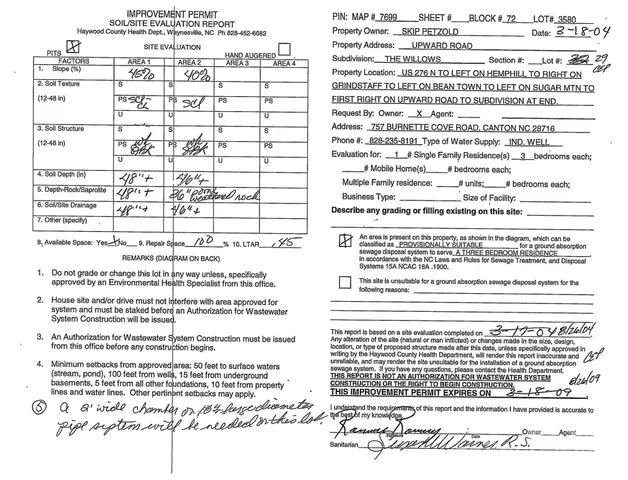 IMPROVEMENT PERMIT
SOIL/SITE EVALUATION REPORT
Haywood County Health Dept., Waynesville, NC Ph 828-452-6682
SITE EVALUATION
PITS X HAND AUGERED
FACTORS AREA 1 AREA 2 AREA 3 AREA 4
1. Slope (%) 45% 40%
2. Soil Texture S S S S
(12-48 in) PS SCL-CL PS SCL PS PS
U U U U
3. Soil Structure S S S S
(12-48 in) PS PS PS PS
U U U U
4. Soil Depth (in) 48"+ 46"+
5. Depth-Rock/Saprolite 48"+ 36" weathered rock
6. Soil/Site Drainage 48"+ 46"+
7. Other (specify)
8. Available Space: Yes X No 9. Repair Space 100 % 10. LTAR .45
REMARKS (DIAGRAM ON BACK)
1. Do not grade or change this lot in any way unless, specifically
approved by an Environmental Health Specialist from this office.
2. House site and/or drive must not interfere with area approved for
system and must be staked before an Authorization for Wastewater
System Construction will be issued.
3. An Authorization for Wastewater System Construction must be issued
from this office before any construction begins.
4. Minimum setbacks from approved area: 50 feet to surface waters
(stream, pond), 100 feet from wells, 15 feet from underground
basements, 5 feet from all other foundations, 10 feet from property
lines and water lines. Other pertinent setbacks may apply.
5 a 2' wide chamber or large diameter
pipe system will be needed on this lot.
PIN: MAP # 7699 SHEET # BLOCK # 72 LOT# 3580
Property Owner: SKIP PETZOLD Date: 3-18-04
Property Address: UPWARD ROAD
Subdivision: THE WILLOWS Section #: Lot #: 29
Property Location: US 276 N TO LEFT ON HEMPHILL TO RIGHT ON
GRINDSTAFF TO LEFT ON BEAN TOWN TO LEFT ON SUGAR MTN TO
FIRST RIGHT ON UPWARD ROAD TO SUBDIVISION AT END.
Request By: Owner: X Agent:
Address: 757 BURNETTE COVE ROAD, CANTON NC 28716
Phone #: 828-235-8191 Type of Water Supply: IND. WELL
Evaluation for: 1 # Single Family Residence(s) 3 bedrooms each;
# Mobile Home(s) # bedrooms each;
Multiple Family residence: # units; # bedrooms each;
Business Type: Size of Facility:
Describe any grading or filling existing on this site:
X An area is present on this property, as shown in the diagram, which can be
classified as PROVISIONALLY SUITABLE for a ground absorption
sewage disposal system to serve A THREE BEDROOM RESIDENCE
in accordance with the NC Laws and Rules for Sewage Treatment, and Disposal
Systems 15A NCAC 18A .1900.
This site is unsuitable for a ground absorption sewage disposal system for the
following reasons:
This report is based on a site evaluation completed on 3-17-04 8/26/04
Any alteration of the site (natural or man inflicted) or changes made in the size, design,
location, or type of proposed structure made after this date, unless specifically approved in
writing by the Haywood County Health Department, will render this report inaccurate and
unreliable, and may render the site unsuitable for the installation of a ground absorption
sewage system. If you have any questions, please contact the Health Department.
THIS REPORT IS NOT AN AUTHORIZATION FOR WASTEWATER SYSTEM
CONSTRUCTION OR THE RIGHT TO BEGIN CONSTRUCTION.
THIS IMPROVEMENT PERMIT EXPIRES ON 3-18-09 8/26/09
I understand the requirements of this report and the information I have provided is accurate to
the best of my knowledge.
Signature Date Owner Agent
Sanitarian R.S.